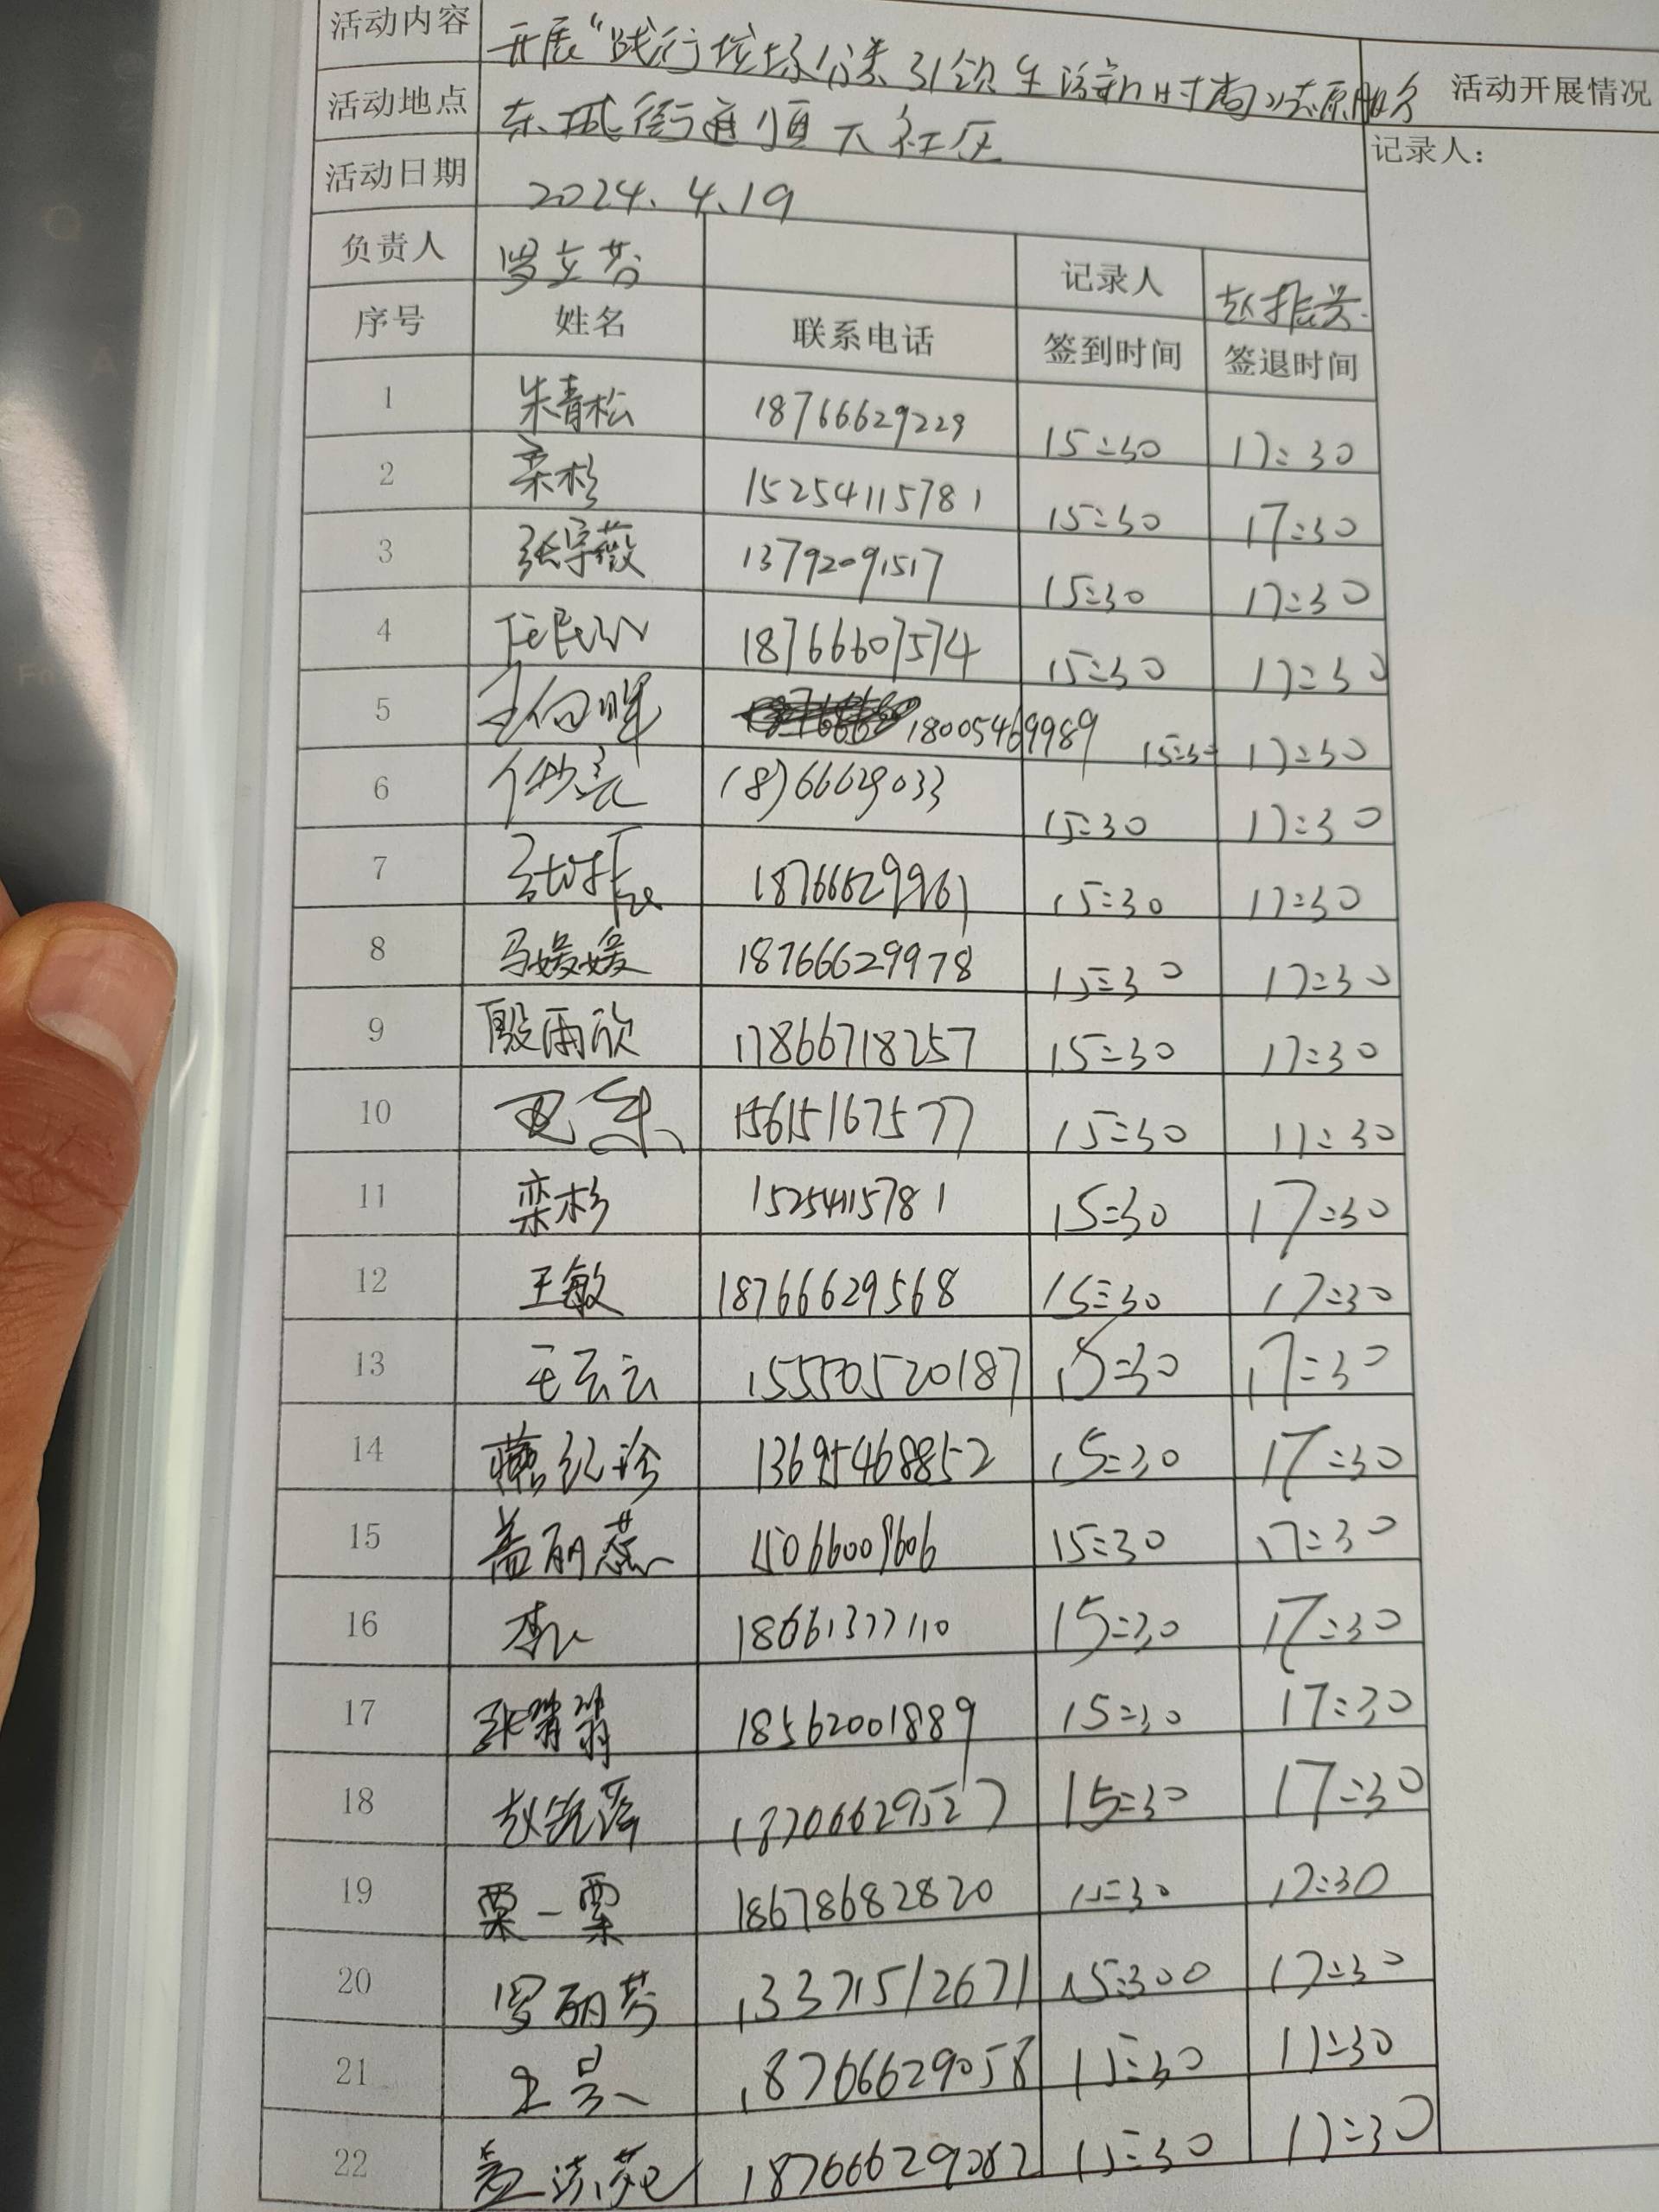 活动内容 开展“践行垃圾分类 引领生活新时尚”志愿服务 活动开展情况
活动地点 东城街道恒大社区
记录人：
活动日期 2024.4.19
负责人 罗立芳 记录人 赵振兴
序号 姓名 联系电话 签到时间 签退时间
1 朱青松 18766629229 15:30 17:30
2 栾杉 15254115781 15:30 17:30
3 张宇薇 13792091517 15:30 17:30
4 18766607574 15:30 17:30
5 18005469989 15:30 17:30
6 18766629033 15:30 17:30
7 18766629961 15:30 17:30
8 马媛媛 18766629978 15:30 17:30
9 殷雨欣 17866718257 15:30 17:30
10 15615167577 15:30 17:30
11 栾杉 15254115781 15:30 17:30
12 王敏 18766629568 15:30 17:30
13 王云云 15550520187 15:30 17:30
14 13695468852 15:30 17:30
15 盖丽蕊 15066009606 15:30 17:30
16 18661377110 15:30 17:30
17 18562001889 15:30 17:30
18 15:30 17:30
19 栗一栗 18678682820 15:30 17:30
20 罗丽芳 13371512671 15:300 17:30
21 王昊 18766629058 15:30 17:30
22 18766629082 15:30 17:30